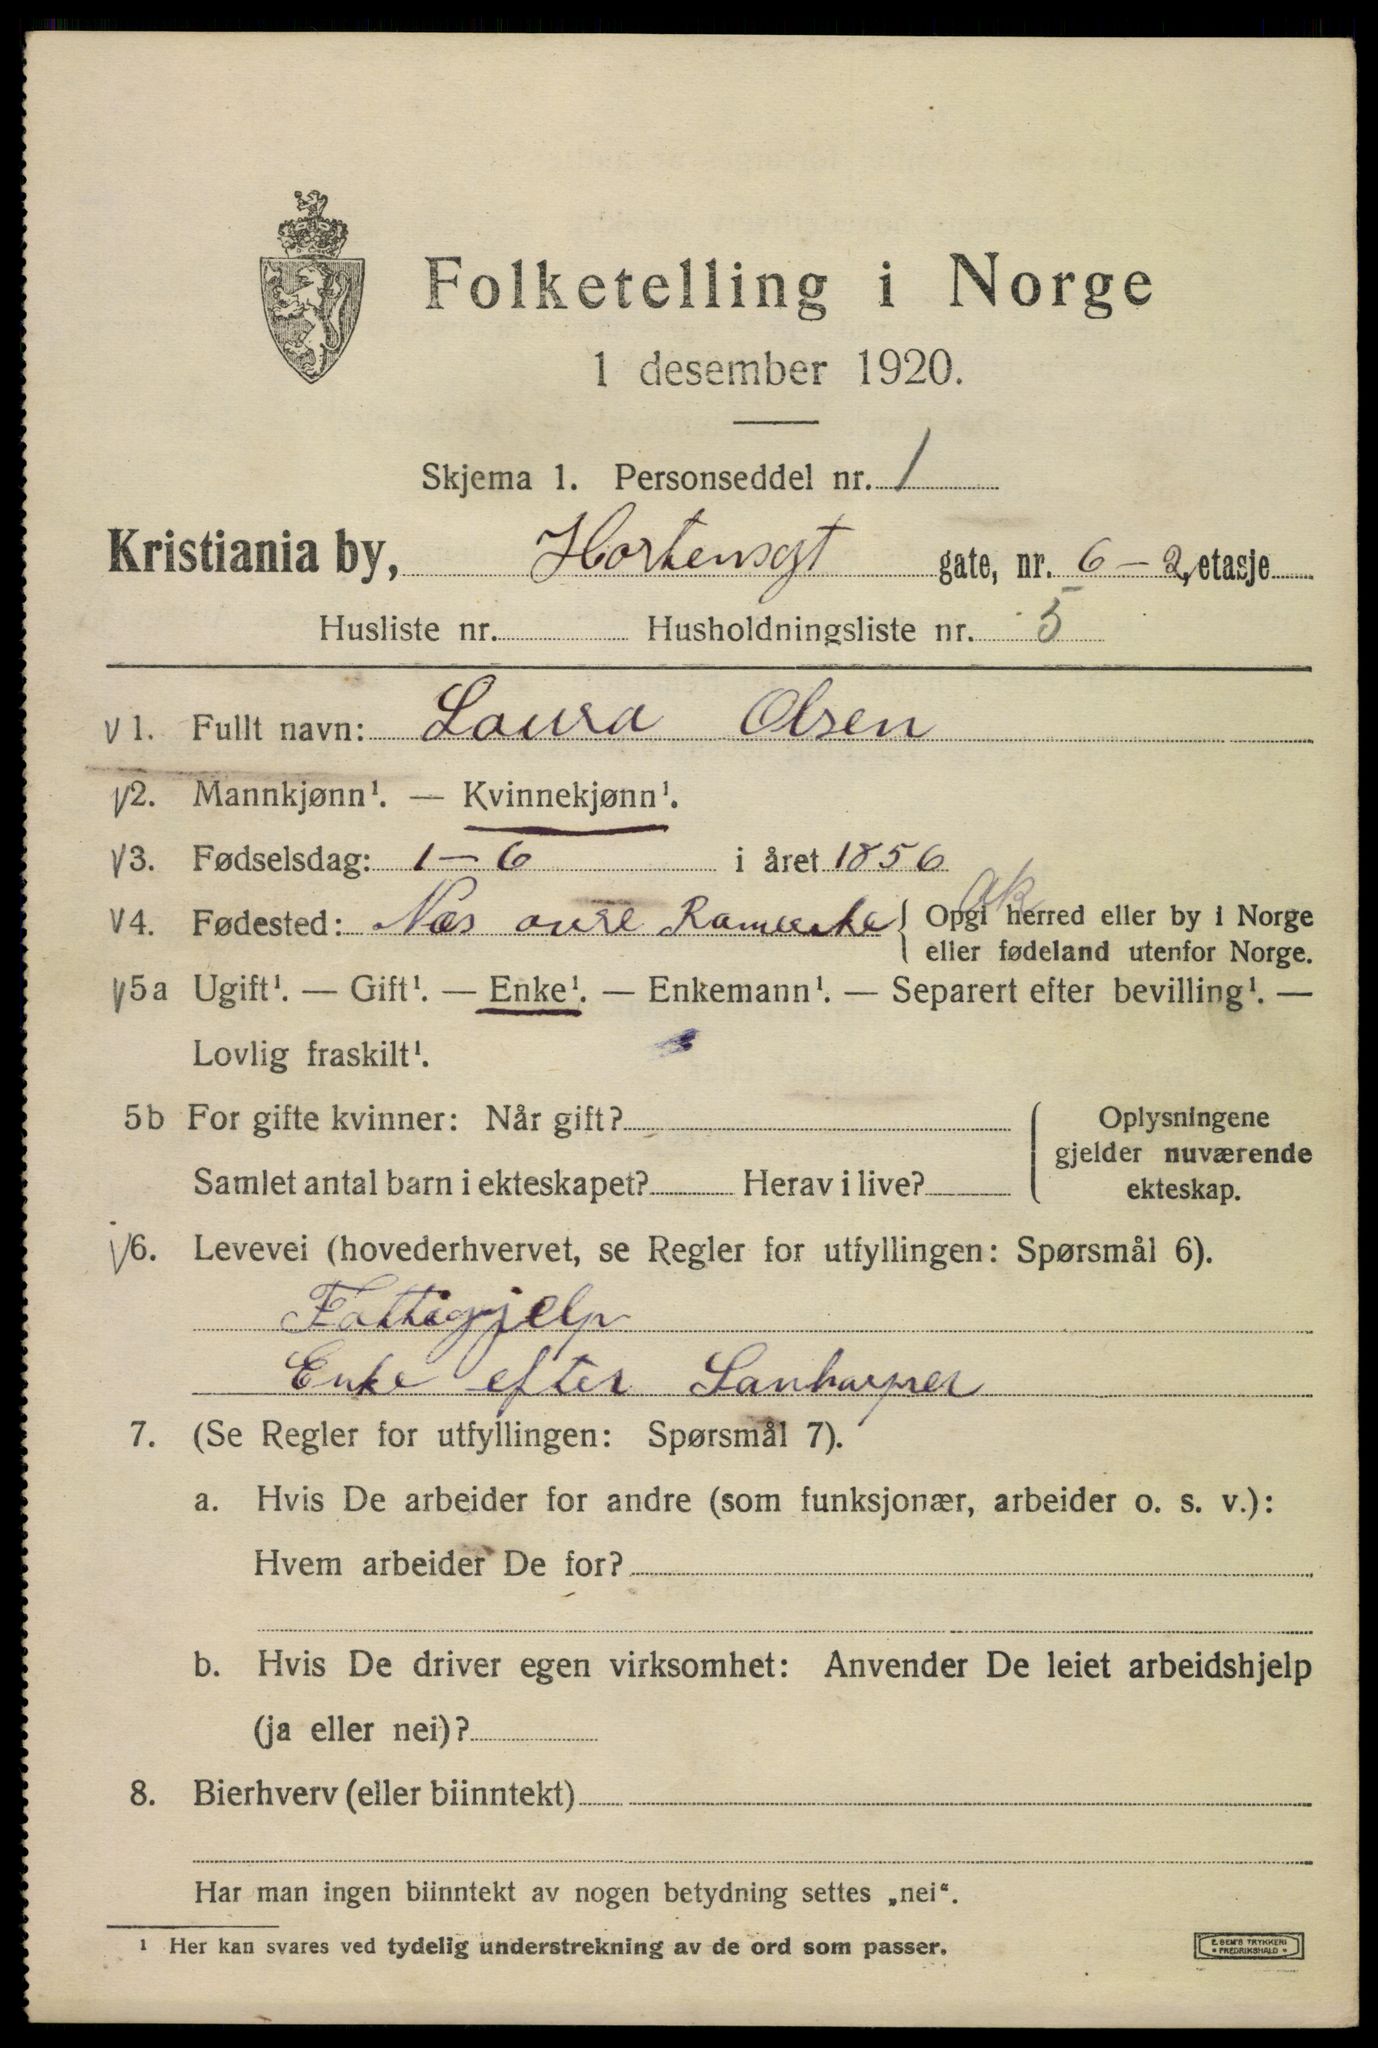 Folketelling i Norge
1 desember 1920.
Skjema 1. Personseddel nr. 1
Kristiania by, Hortensgt gate, nr. 6 – 2, etasje
Husliste nr. Husholdningsliste nr. 5
V 1. Fullt navn: Laura Olsen
V 2. Mannkjønn¹. — Kvinnekjønn¹.
V 3. Fødselsdag: 1 – 6 i året 1856
Ak
V 4. Fødested: Næs øvre { Opgi herred eller by i Norge
eller fødeland utenfor Norge.
V 5a Ugift¹. — Gift¹. — Enke¹. — Enkemann¹. — Separert efter bevilling¹. —
Lovlig fraskilt¹.
5b For gifte kvinner: Når gift? { Oplysningene
gjelder nuværende
Samlet antal barn i ekteskapet? Herav i live? ekteskap.
V 6. Levevei (hovederhvervet, se Regler for utfyllingen: Spørsmål 6).
Fattigjelp
Enke efter
7. (Se Regler for utfyllingen: Spørsmål 7).
a. Hvis De arbeider for andre (som funksjonær, arbeider o. s. v.):
Hvem arbeider De for?
b. Hvis De driver egen virksomhet: Anvender De leiet arbeidshjelp
(ja eller nei)?
8. Bierhverv (eller biinntekt)
Har man ingen biinntekt av nogen betydning settes „nei“.
¹ Her kan svares ved tydelig understrekning av de ord som passer.
E. SEM'S TRYKKERI
• FREDRIKSHALD •